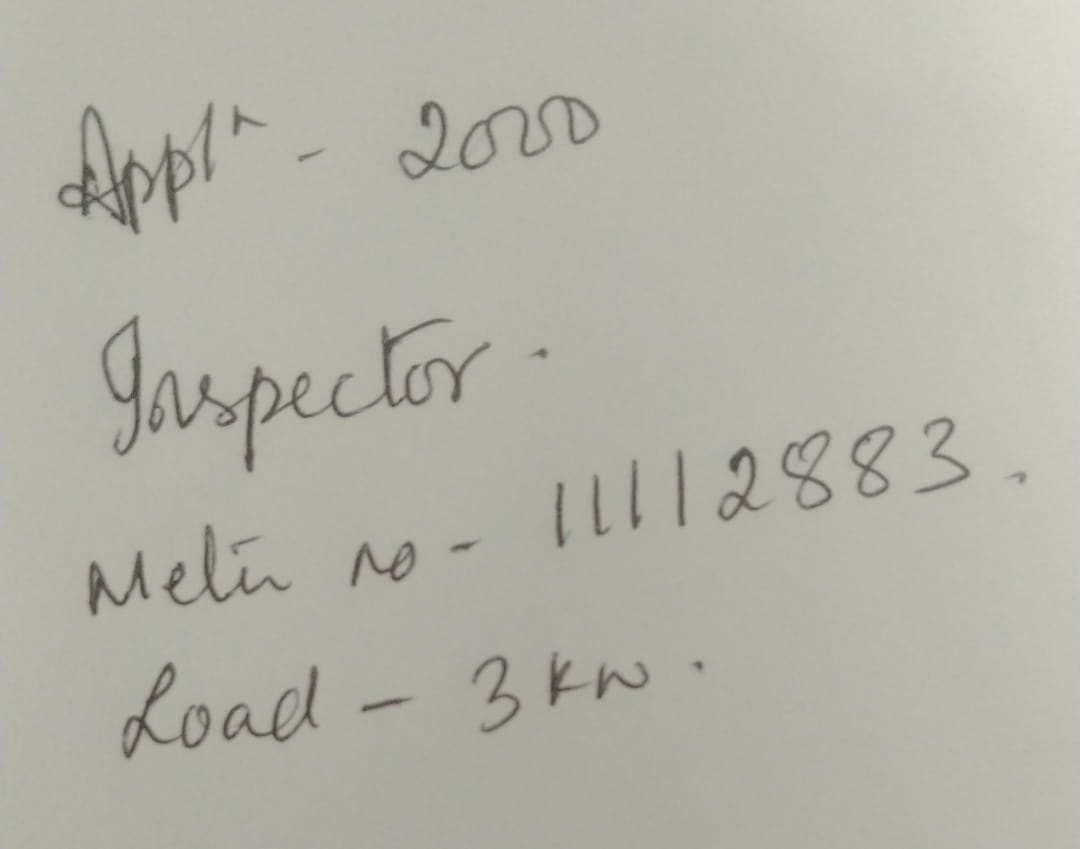 Appln - 2000
Inspector.
Meter no - 11112883.
Load - 3 KW.